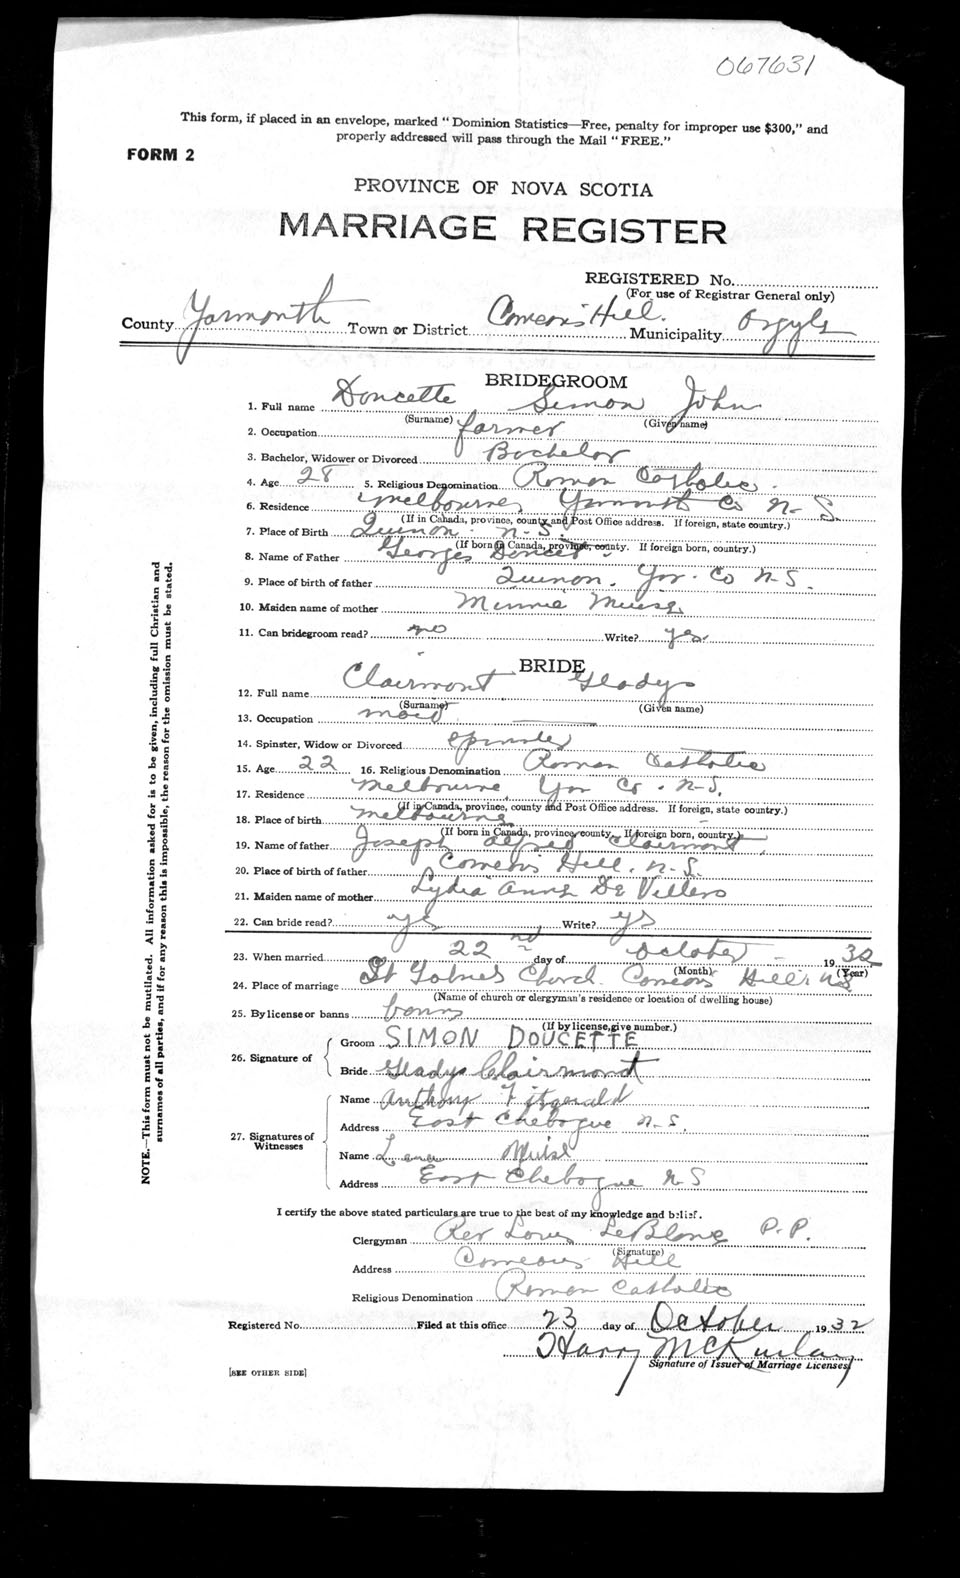 067631
This form, if placed in an envelope, marked "Dominion Statistics—Free, penalty for improper use $300," and
properly addressed will pass through the Mail "FREE."
FORM 2
PROVINCE OF NOVA SCOTIA
MARRIAGE REGISTER
REGISTERED No.
(For use of Registrar General only)
County Yarmouth Town or District Comeau's Hill. Municipality Argyle
BRIDEGROOM
1. Full name Doucette Simon John
(Surname) (Given name)
2. Occupation farmer
3. Bachelor, Widower or Divorced Bachelor
4. Age 28 5. Religious Denomination Roman Catholic.
6. Residence Melbourne, Yarmouth Co N-S.
(If in Canada, province, county and Post Office address. If foreign, state country.)
7. Place of Birth Quinon N-S.
(If born in Canada, province, county. If foreign born, country.)
8. Name of Father Georges Doucet.
9. Place of birth of father Quinon. Yar. Co N-S.
10. Maiden name of mother Minnie Muise
11. Can bridegroom read? no Write? yes.
BRIDE
12. Full name Clairmont Gladys
(Surname) (Given name)
13. Occupation maid
14. Spinster, Widow or Divorced spinster
15. Age 22 16. Religious Denomination Roman Catholic
17. Residence Melbourne, Yar Co. N-S.
(If in Canada, province, county and Post Office address. If foreign, state country.)
18. Place of birth Melbourne
(If born in Canada, province county. If foreign born, country.)
19. Name of father Joseph Alfred Clairmont.
20. Place of birth of father Comeau's Hill. N-S.
21. Maiden name of mother Lydia Anne De Villers
22. Can bride read? yes Write? yes
23. When married 22nd day of October 1932
(Month) (Year)
24. Place of marriage St Church Comeau's Hill N.S
(Name of church or clergyman's residence or location of dwelling house)
25. By license or banns banns
(If by license, give number.)
26. Signature of
Groom SIMON DOUCETTE
Bride Gladys Clairmont
27. Signatures of Witnesses
Name Anthony Fitzgerald
Address East Chebogue N-S.
Name Lena Muise
Address East Chebogue N S
I certify the above stated particulars are true to the best of my knowledge and belief.
Clergyman Rev Louis LeBlanc P.P.
(Signature)
Address Comeau's Hill
Religious Denomination Roman Catholic
Registered No. Filed at this office 23 day of October 1932
Harry McKinlay
Signature of Issuer of Marriage Licenses
[SEE OTHER SIDE]
NOTE.—This form must not be mutilated. All information asked for is to be given, including full Christian and
surnames of all parties, and if for any reason this is impossible, the reason for the omission must be stated.